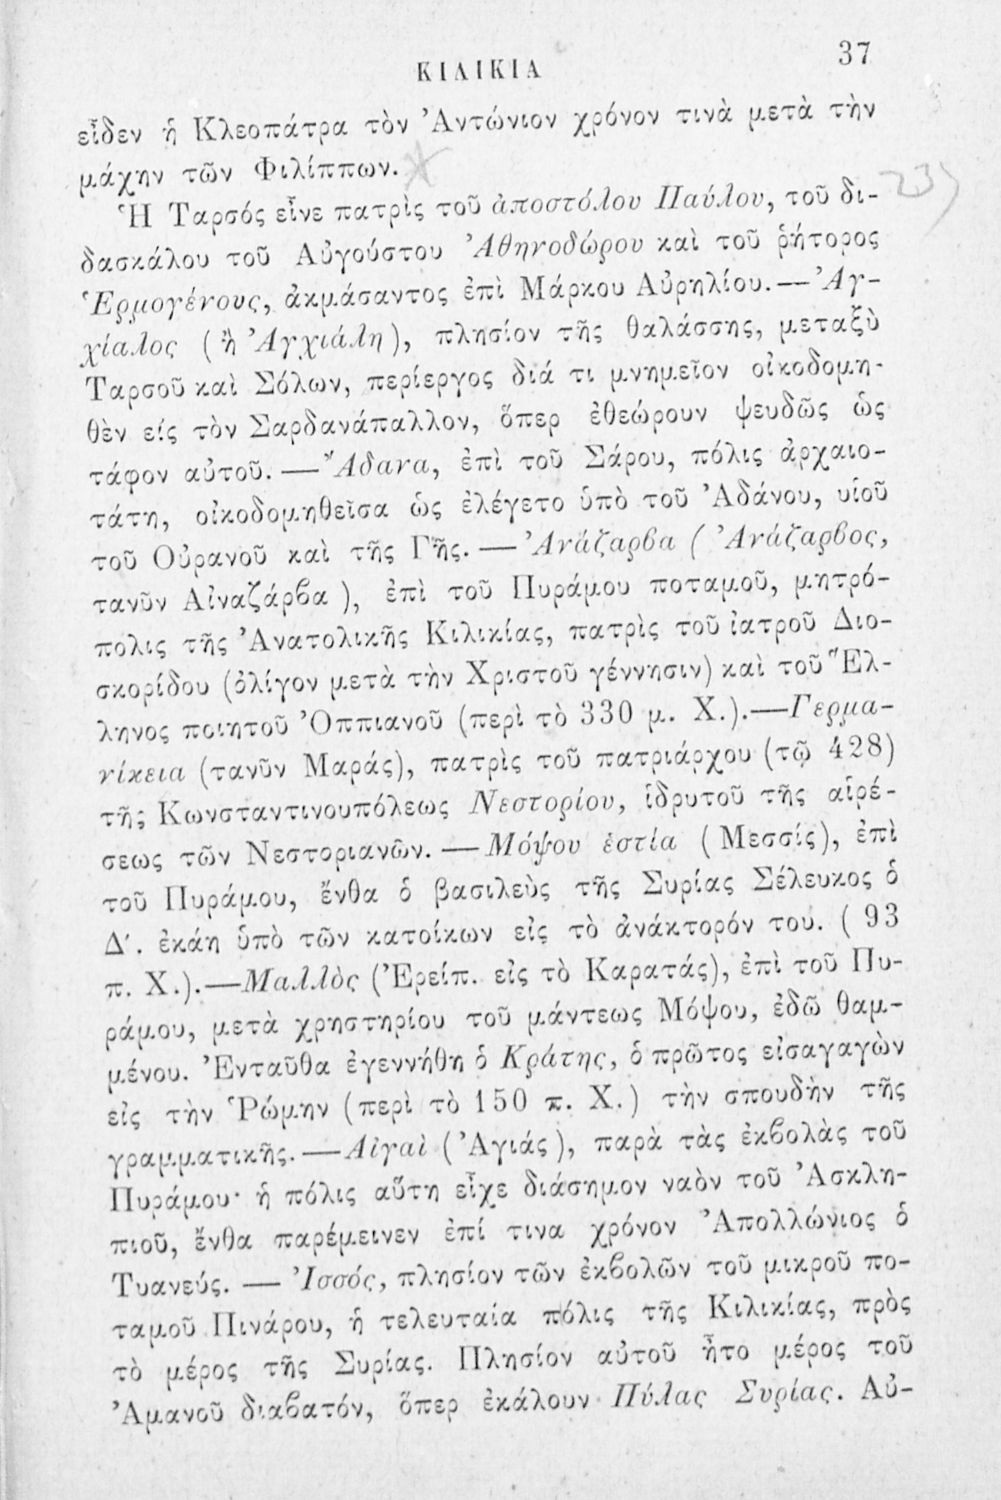 ΚΙΛΙΚΙΑ
37
εἶδεν ἡ Κλεοπάτρα τὸν Ἀντώνιον χρόνον τινὰ μετὰ τὴν
μάχην τῶν Φιλίππων.
Ἡ Ταρσός εἶνε πατρὶς τοῦ ἀποστόλου Παύλου, τοῦ δι-
δασκάλου τοῦ Αὐγούστου Ἀθηνοδώρου καὶ τοῦ ῥήτορος
Ἑρμογένους, ἀκμάσαντος ἐπὶ Μάρκου Αὐρηλίου.—Ἀγ-
χίαλος (ἢ Ἀγχιάλη), πλησίον τῆς θαλάσσης, μεταξὺ
Ταρσοῦ καὶ Σόλων, περίεργος διά τι μνημεῖον οἰκοδομη-
θὲν εἰς τὸν Σαρδανάπαλλον, ὅπερ ἐθεώρουν ψευδῶς ὡς
τάφον αὐτοῦ.—Ἄδανα, ἐπὶ τοῦ Σάρου, πόλις ἀρχαιο-
τάτη, οἰκοδομηθεῖσα ὡς ἐλέγετο ὑπὸ τοῦ Ἀδάνου, υἱοῦ
τοῦ Οὐρανοῦ καὶ τῆς Γῆς.—Ἀνάζαρβα (Ἀνάζαρβος,
τανῦν Αἰναζάρβα), ἐπὶ τοῦ Πυράμου ποταμοῦ, μητρό-
πολις τῆς Ἀνατολικῆς Κιλικίας, πατρὶς τοῦ ἰατροῦ Διο-
σκορίδου (ὀλίγον μετὰ τὴν Χριστοῦ γέννησιν) καὶ τοῦ Ἕλ-
ληνος ποιητοῦ Ὀππιανοῦ (περὶ τὸ 330 μ. Χ.).—Γερμα-
νίκεια (τανῦν Μαράς), πατρὶς τοῦ πατριάρχου (τῷ 428)
τῆς Κωνσταντινουπόλεως Νεστορίου, ἱδρυτοῦ τῆς αἱρέ-
σεως τῶν Νεστοριανῶν.—Μόψου ἑστία (Μεσσίς), ἐπὶ
τοῦ Πυράμου, ἔνθα ὁ βασιλεὺς τῆς Συρίας Σέλευκος ὁ
Δʹ. ἐκάη ὑπὸ τῶν κατοίκων εἰς τὸ ἀνάκτορόν του. (93
π. Χ.).—Μαλλὸς (Ἐρείπ. εἰς τὸ Καρατάς), ἐπὶ τοῦ Πυ-
ράμου, μετὰ χρηστηρίου τοῦ μάντεως Μόψου, ἐδῶ θαμ-
μένου. Ἐνταῦθα ἐγεννήθη ὁ Κράτης, ὁ πρῶτος εἰσαγαγὼν
εἰς τὴν Ῥώμην (περὶ τὸ 150 π. Χ.) τὴν σπουδὴν τῆς
γραμματικῆς.—Αἰγαὶ (Ἀγιάς), παρὰ τὰς ἐκβολὰς τοῦ
Πυράμου· ἡ πόλις αὕτη εἶχε διάσημον ναὸν τοῦ Ἀσκλη-
πιοῦ, ἔνθα παρέμεινεν ἐπί τινα χρόνον Ἀπολλώνιος ὁ
Τυανεύς.—Ἰσσός, πλησίον τῶν ἐκβολῶν τοῦ μικροῦ πο-
ταμοῦ Πινάρου, ἡ τελευταία πόλις τῆς Κιλικίας, πρὸς
τὸ μέρος τῆς Συρίας. Πλησίον αὐτοῦ ἦτο μέρος τοῦ
Ἀμανοῦ διαβατόν, ὅπερ ἐκάλουν Πύλας Συρίας. Αὐ-